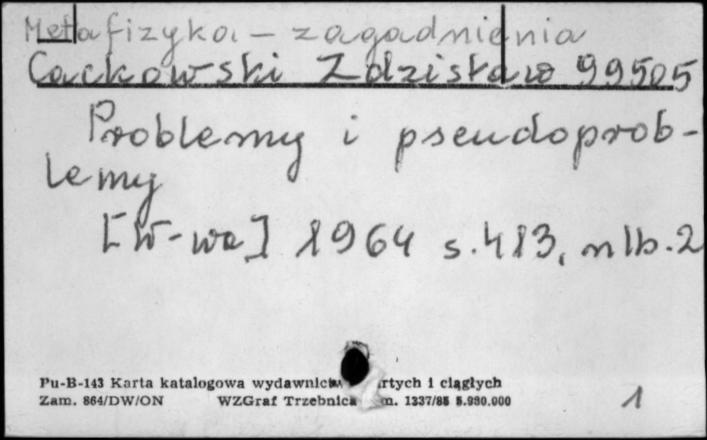 Metafizyka - zagadnienia
Cackowski Zdzisław 99505
Problemy i pseudoprob-
lemy
[W-wa] 1964 s. 413, nlb. 2
Pu-B-143 Karta katalogowa wydawnictw zwartych i ciągłych
Zam. 864/DW/ON WZGraf Trzebnica zam. 1337/85 5.980.000
1